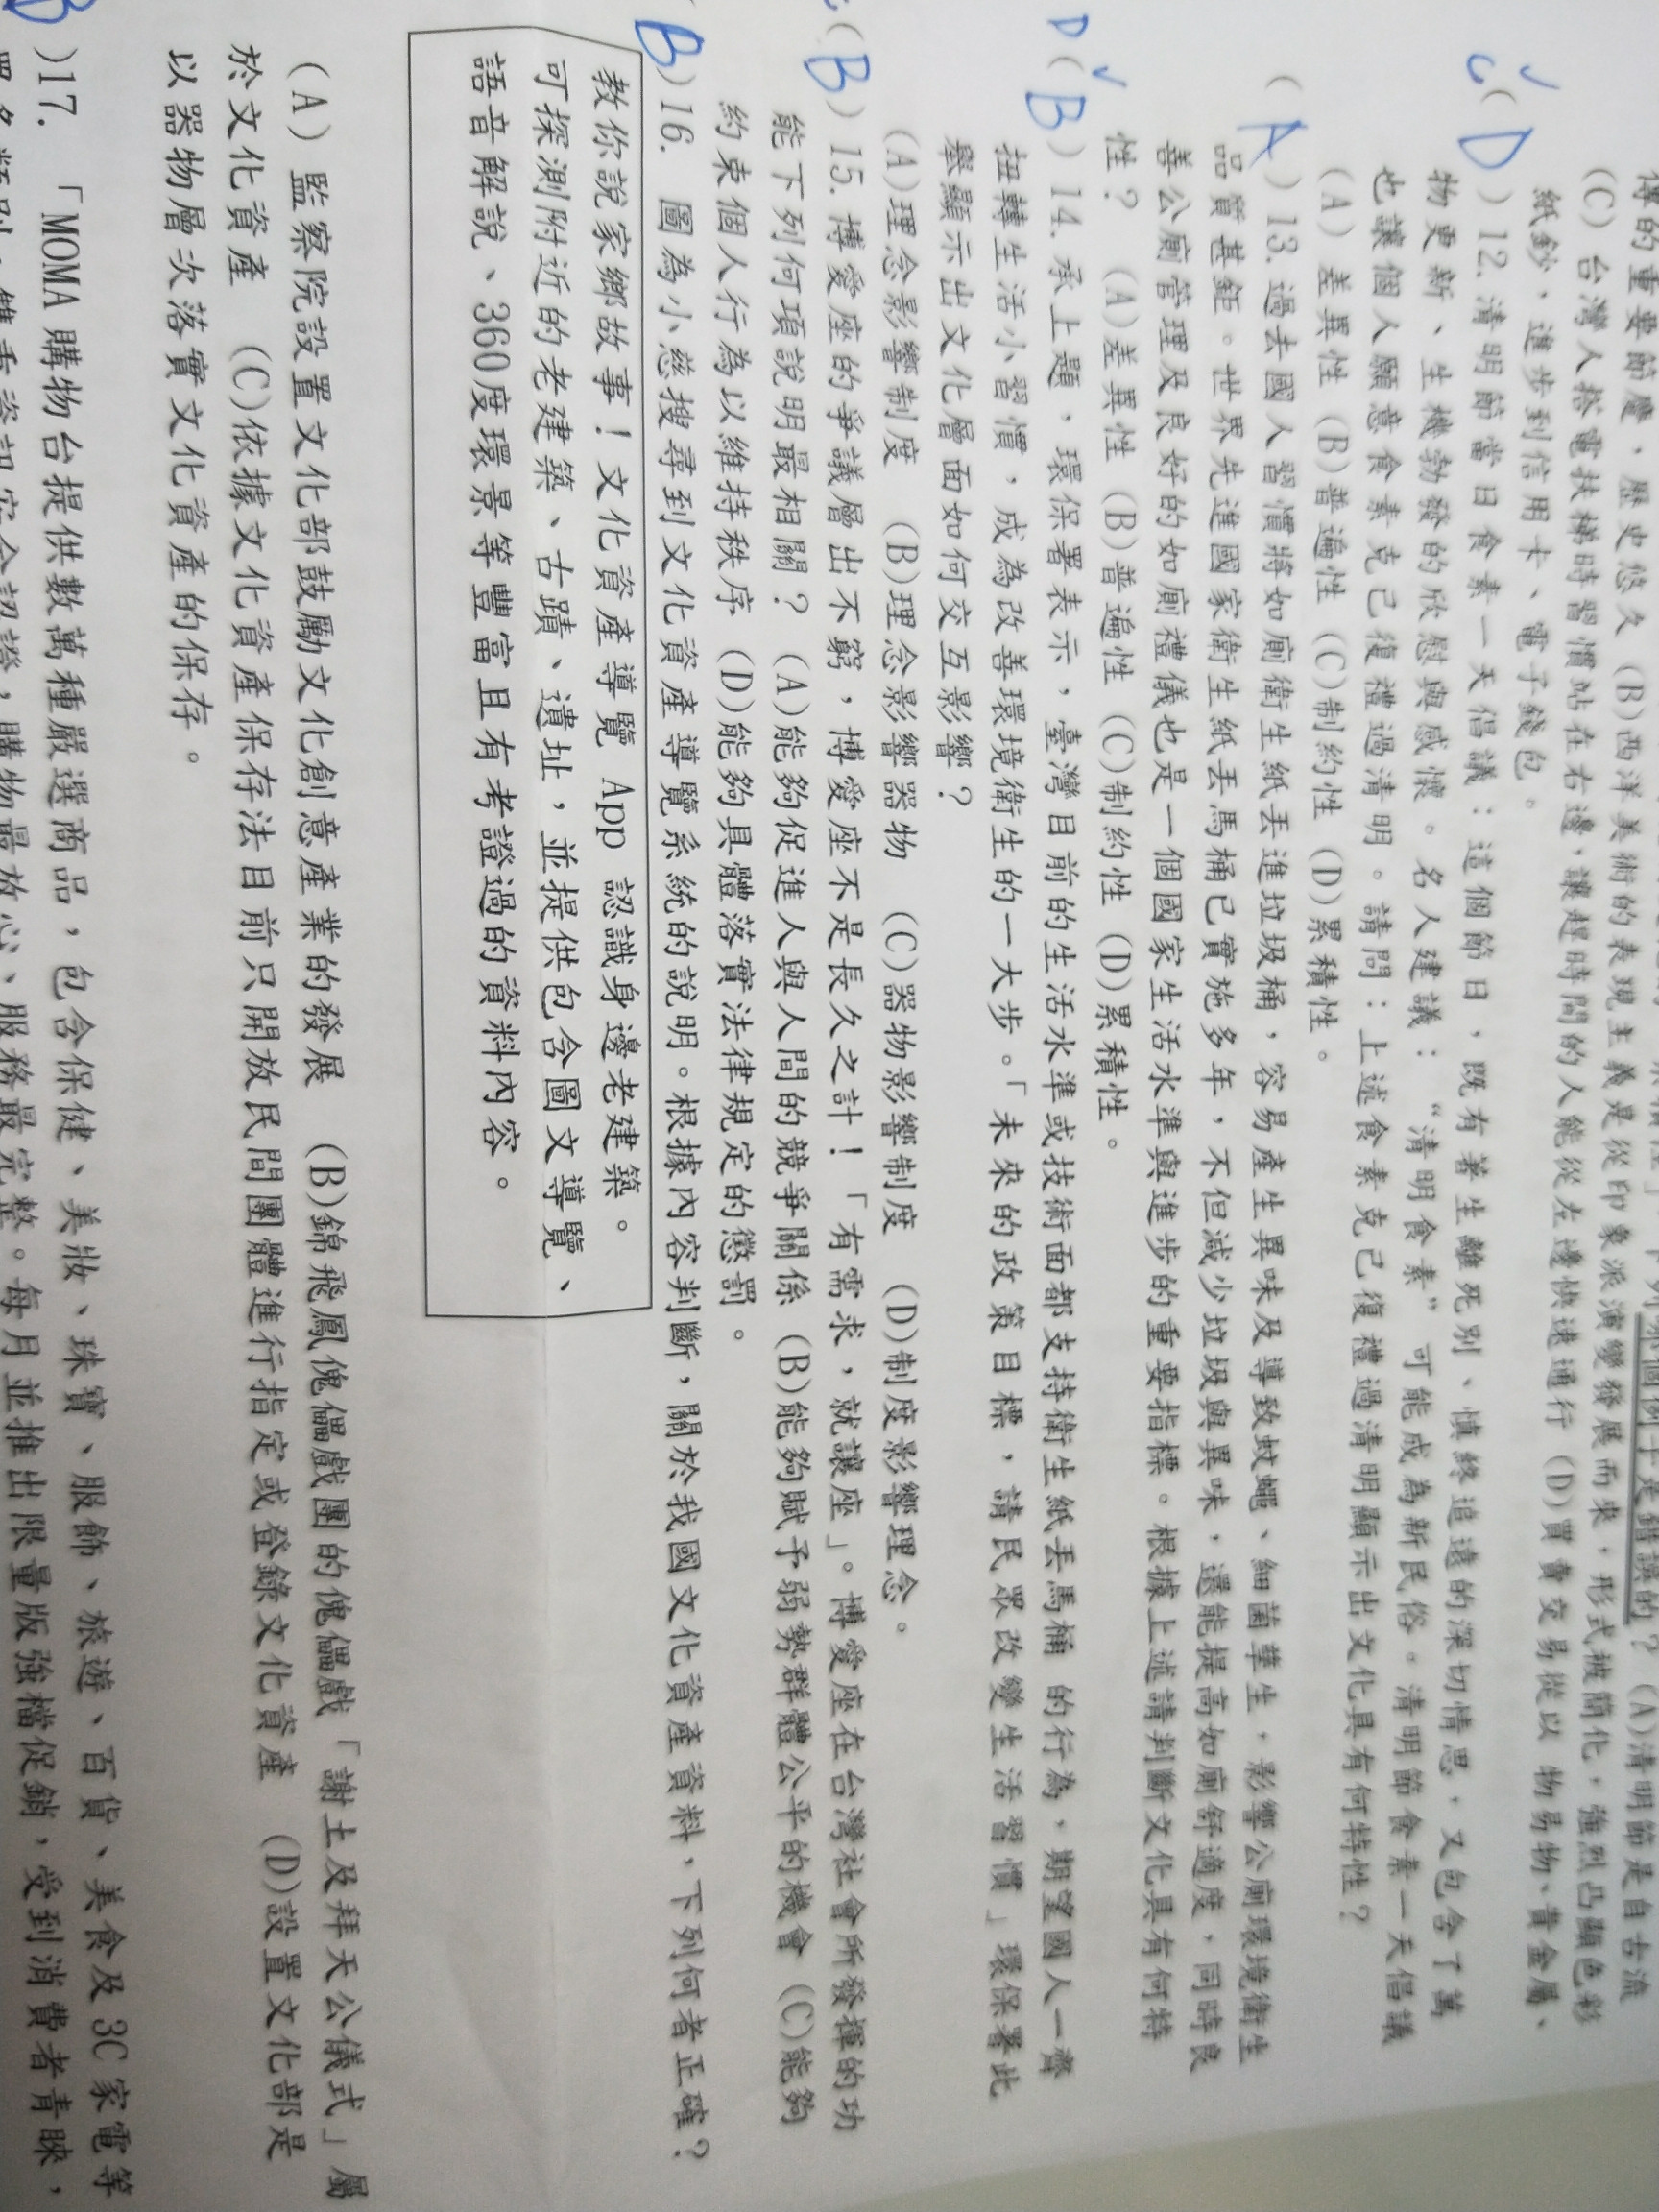 傳的重要節慶，歷史悠久 (B)西洋美術的表現主義是從印象派演變發展而來，形式被簡化，強烈凸顯色彩
(C) 台灣人搭電扶梯時習慣站在右邊，讓趕時間的人能從左邊快速通行 (D)買賣交易從以 物易物、貴金屬、
紙鈔，進步到信用卡、電子錢包。
C(D)12.清明節當日食素一天倡議：這個節日，既有著生離死別、慎終追遠的深切情思，又包含了萬
物更新、生機勃發的欣慰與感懷。名人建議：“清明食素” 可能成為新民俗。清明節食素一天倡議
也讓個人願意食素克己復禮過清明。請問：上述食素克己復禮過清明顯示出文化具有何特性？
(A) 差異性 (B)普遍性 (C)制約性 (D)累積性。
(A)13.過去國人習慣將如廁衛生紙丟進垃圾桶，容易產生異味及導致蚊蠅、細菌孳生，影響公廁環境衛生
品質甚鉅。世界先進國家衛生紙丟馬桶已實施多年，不但減少垃圾與異味，還能提高如廁舒適度，同時良
善公廁管理及良好的如廁禮儀也是一個國家生活水準與進步的重要指標。根據上述請判斷文化具有何特
性？ (A)差異性 (B)普遍性 (C)制約性 (D)累積性。
D(B)14.承上題，環保署表示，臺灣目前的生活水準或技術面都支持衛生紙丟馬桶 的行為，期望國人一齊
扭轉生活小習慣，成為改善環境衛生的一大步。「未來的政策目標，請民眾改變生活習慣」環保署此
舉顯示出文化層面如何交互影響？
(A)理念影響制度 (B)理念影響器物 (C)器物影響制度 (D)制度影響理念。
(B)15.博愛座的爭議層出不窮，博愛座不是長久之計！「有需求，就讓座」。博愛座在台灣社會所發揮的功
能下列何項說明最相關？ (A)能夠促進人與人間的競爭關係 (B)能夠賦予弱勢群體公平的機會 (C)能夠
約束個人行為以維持秩序 (D)能夠具體落實法律規定的懲罰。
(B)16. 圖為小慈搜尋到文化資產導覽系統的說明。根據內容判斷，關於我國文化資產資料，下列何者正確？
教你說家鄉故事！文化資產導覽 App 認識身邊老建築。
可探測附近的老建築、古蹟、遺址，並提供包含圖文導覽、
語音解說、360度環景等豐富且有考證過的資料內容。
(A) 監察院設置文化部鼓勵文化創意產業的發展 (B)錦飛鳳傀儡戲團的傀儡戲 「謝土及拜天公儀式」屬
於文化資產 (C)依據文化資產保存法目前只開放民間團體進行指定或登錄文化資產 (D)設置文化部是
以器物層次落實文化資產的保存。
)17. 「MOMA 購物台提供數萬種嚴選商品，包含保健、美妝、珠寶、服飾、旅遊、百貨、美食及 3C 家電等
購物最放心、服務最完整。每月並推出限量版強檔促銷，受到消費者青睞，